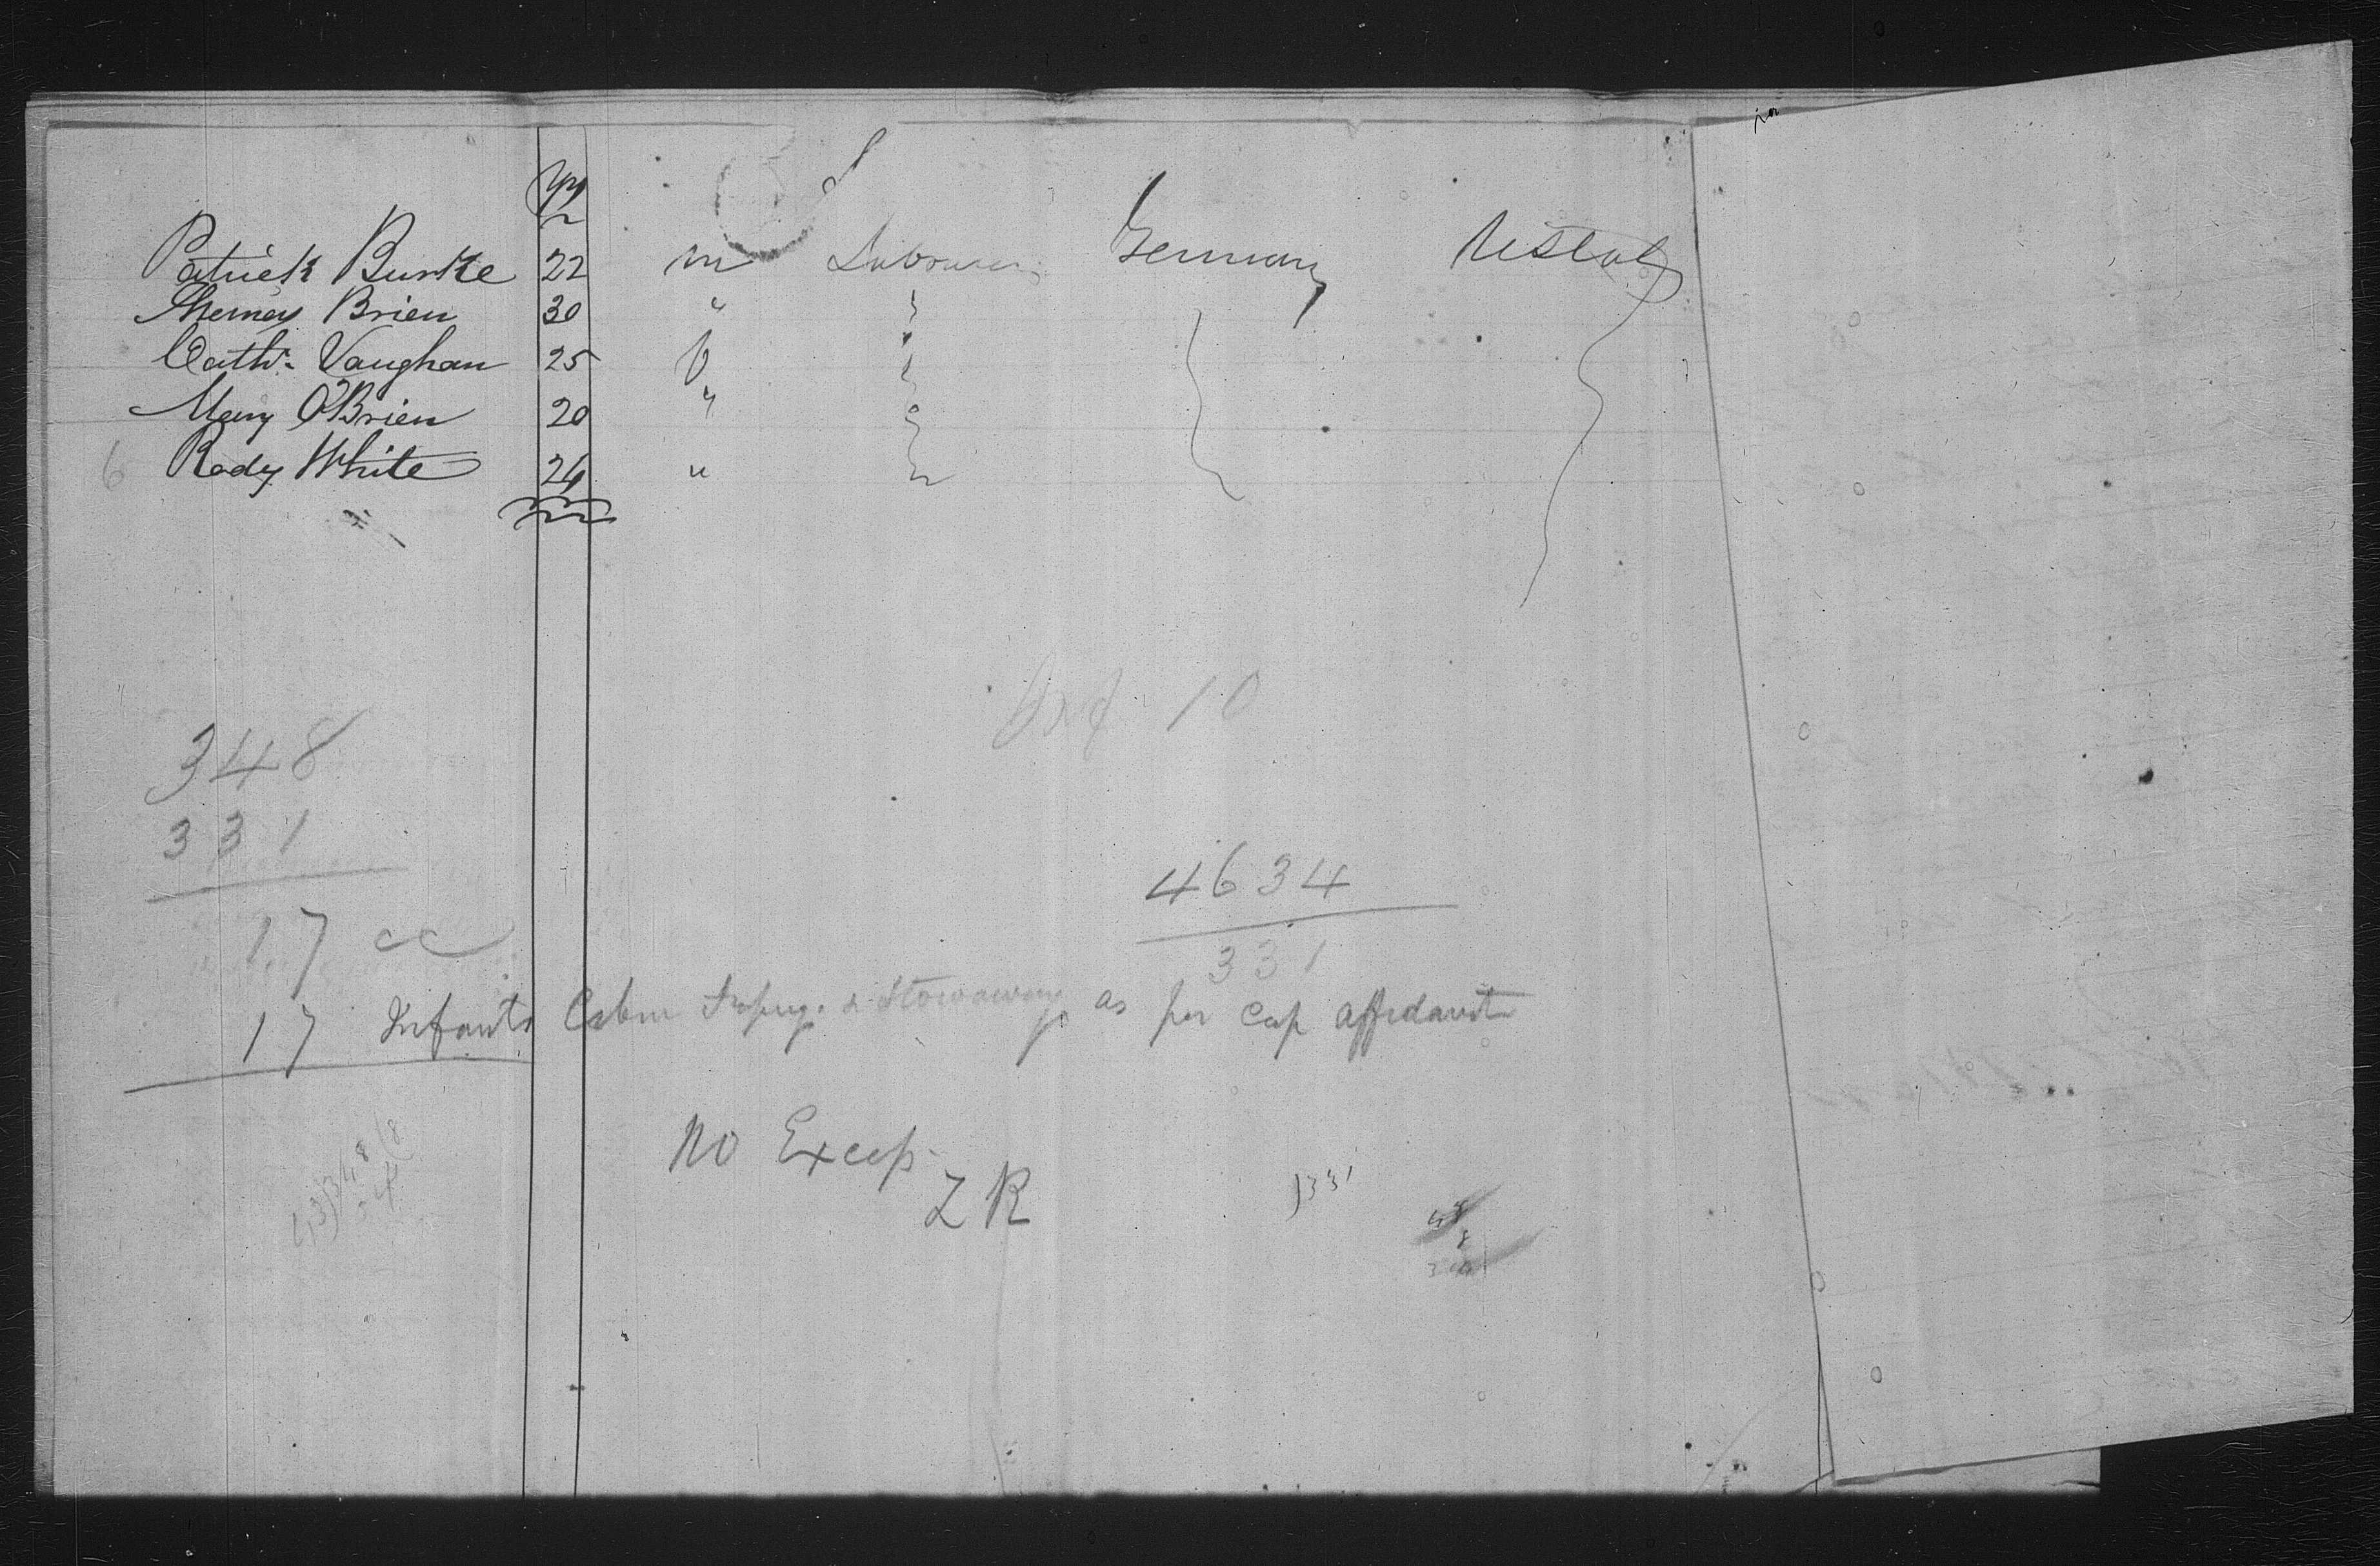 yrs
Patrick Burke 22 m Labourer Germany UStat
Brien 30 "
Cath. Vaughan 25 f
Mary O'Brien 20 "
6 Rody White 24 "
Inf 10
348
331
17 cc
4634
331
17 Infants Cabin & Stowaways as per Cap affidavit
No Excep
Z R
331